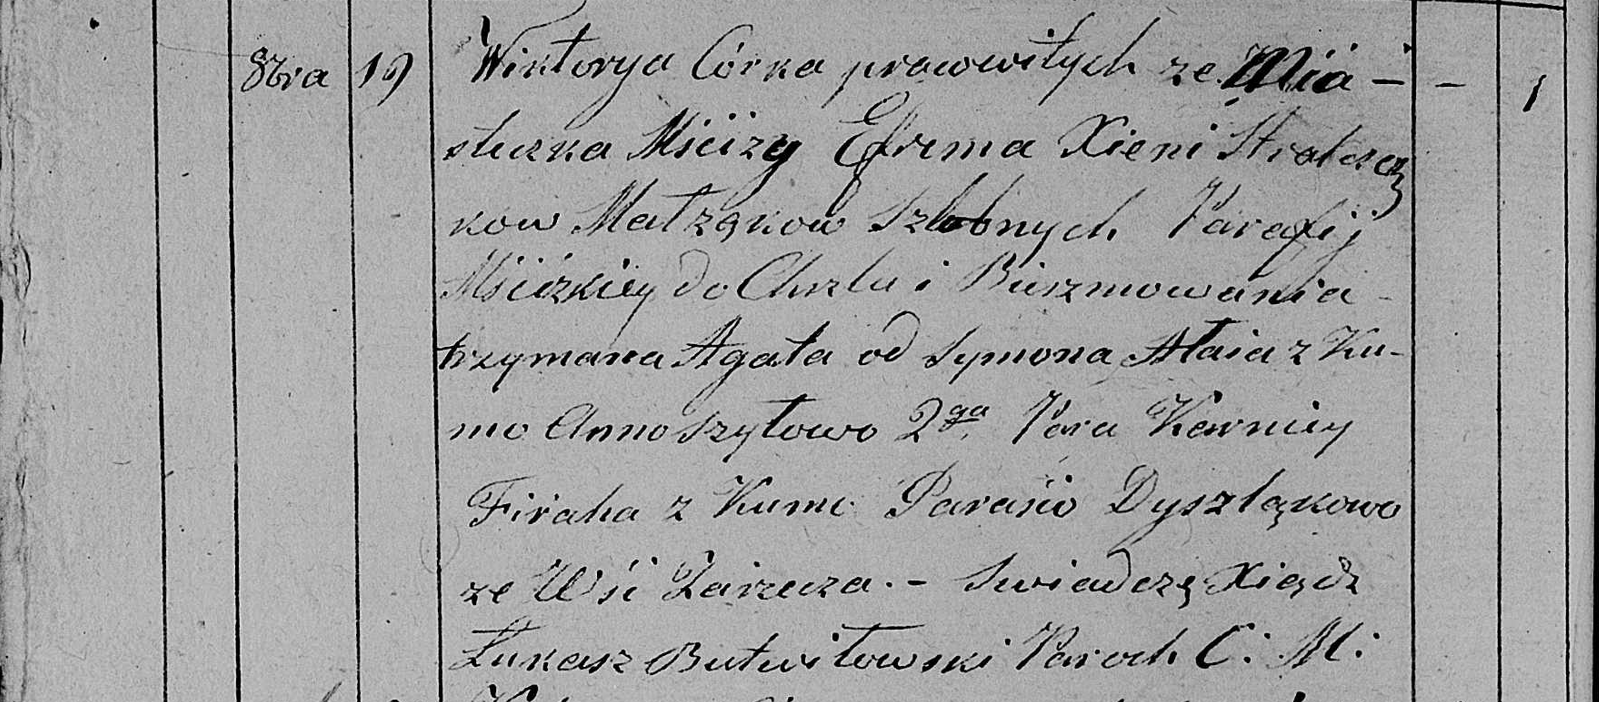 8bra 19 Wiktorya Córka prawowitych ze Mia- - 1
steczka Mścizy Efrema Xieni Stralczą
kow Małżąkow Szlubnych Parafij
Mścizkiey do Chrztu i Bierzmowania
trzymana Agata od Symona Ataia z Ku-
mo Anno Szytowo 2ga Para Karniey
Firaha z Kumo Parasio Dyszląkowo
ze Wsi Zarzecza. - Swiadczą Xiądz
Łukasz Butwiłowski Paroch C: M: